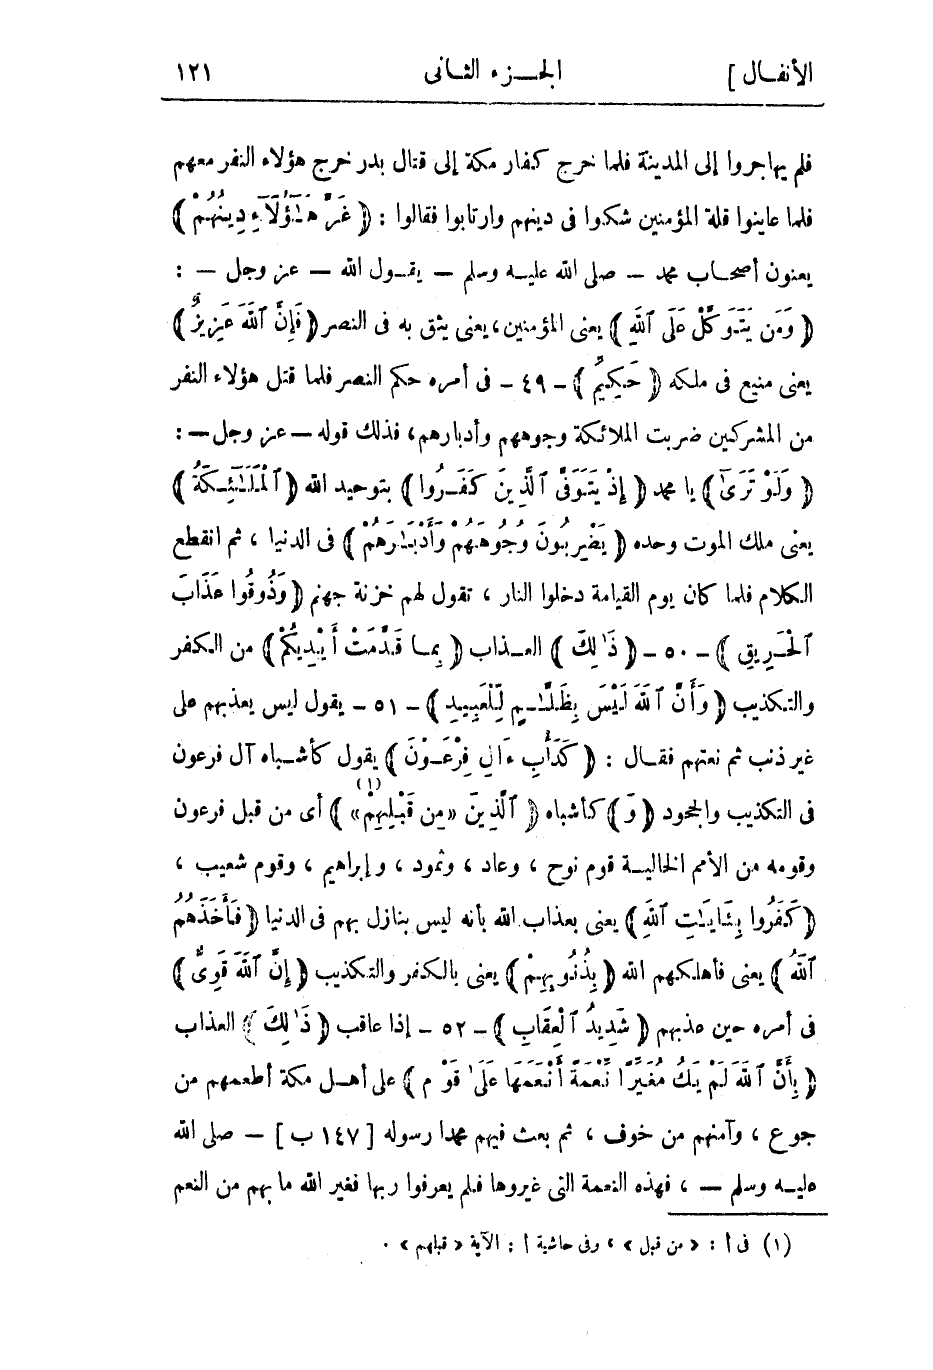 الأنفال ] الجزء الثانى ١٢١
فلم يهاجروا إلى المدينة فلما خرج كفار مكة إلى قتال بدر خرج هؤلاء النفر معهم
فلما عاينوا قلة المؤمنين شكوا فى دينهم وارتابوا فقالوا : ﴿ غَرَّ هَـٰٓؤُلَآءِ دِينُهُمْ ﴾
يعنون أصحاب محمد — صلى الله عليه وسلم — يقول الله — عز وجل — :
﴿ وَمَن يَتَوَكَّلْ عَلَى ٱللَّهِ ﴾ يعنى المؤمنين، يعنى يثق به فى النصر ﴿ فَإِنَّ ٱللَّهَ عَزِيزٌ ﴾
يعنى منيع فى ملكه ﴿ حَكِيمٌ ﴾ - ٤٩ - فى أمره حكم النصر فلما قتل هؤلاء النفر
من المشركين ضربت الملائكة وجوههم وأدبارهم، فذلك قوله — عز وجل — :
﴿ وَلَوْ تَرَىٰٓ ﴾ يا محمد ﴿ إِذْ يَتَوَفَّى ٱلَّذِينَ كَفَرُوا ﴾ بتوحيد الله ﴿ ٱلْمَلَـٰٓئِكَةُ ﴾
يعنى ملك الموت وحده ﴿ يَضْرِبُونَ وُجُوهَهُمْ وَأَدْبَـٰرَهُمْ ﴾ فى الدنيا ، ثم انقطع
الكلام فلما كان يوم القيامة دخلوا النار ، تقول لهم خزنة جهنم ﴿ وَذُوقُوا عَذَابَ
ٱلْحَرِيقِ ﴾ - ٥٠ - ﴿ ذَٰلِكَ ﴾ العذاب ﴿ بِمَا قَدَّمَتْ أَيْدِيكُمْ ﴾ من الكفر
والتكذيب ﴿ وَأَنَّ ٱللَّهَ لَيْسَ بِظَلَّـٰمٍ لِّلْعَبِيدِ ﴾ - ٥١ - يقول ليس يعذبهم على
غير ذنب ثم نعتهم فقال : ﴿ كَدَأْبِ ءَالِ فِرْعَوْنَ ﴾ يقول كأشباه آل فرعون
فى التكذيب والجحود ﴿ وَ ﴾ كأشباه ﴿ ٱلَّذِينَ «مِن قَبْلِهِمْ» (١) ﴾ أى من قبل فرعون
وقومه من الأمم الخالية قوم نوح ، وعاد ، وثمود ، وإبراهيم ، وقوم شعيب ،
﴿ كَفَرُوا بِـَٔايَـٰتِ ٱللَّهِ ﴾ يعنى بعذاب الله بأنه ليس بنازل بهم فى الدنيا ﴿ فَأَخَذَهُمُ
ٱللَّهُ ﴾ يعنى فأهلكهم الله ﴿ بِذُنُوبِهِمْ ﴾ يعنى بالكفر والتكذيب ﴿ إِنَّ ٱللَّهَ قَوِىٌّ ﴾
فى أمره حين عذبهم ﴿ شَدِيدُ ٱلْعِقَابِ ﴾ - ٥٢ - إذا عاقب ﴿ ذَٰلِكَ ﴾ العذاب
﴿ بِأَنَّ ٱللَّهَ لَمْ يَكُ مُغَيِّرًا نِّعْمَةً أَنْعَمَهَا عَلَىٰ قَوْمٍ ﴾ على أهل مكة أطعمهم من
جوع ، وآمنهم من خوف ، ثم بعث فيهم محمدا رسوله [ ١٤٧ ب ] — صلى الله
عليه وسلم — ، فهذه النعمة التى غيروها فلم يعرفوا ربها فغير الله ما بهم من النعم
(١) فى أ : « من قبل » ، وفى حاشية أ : الآية « قبلهم » .